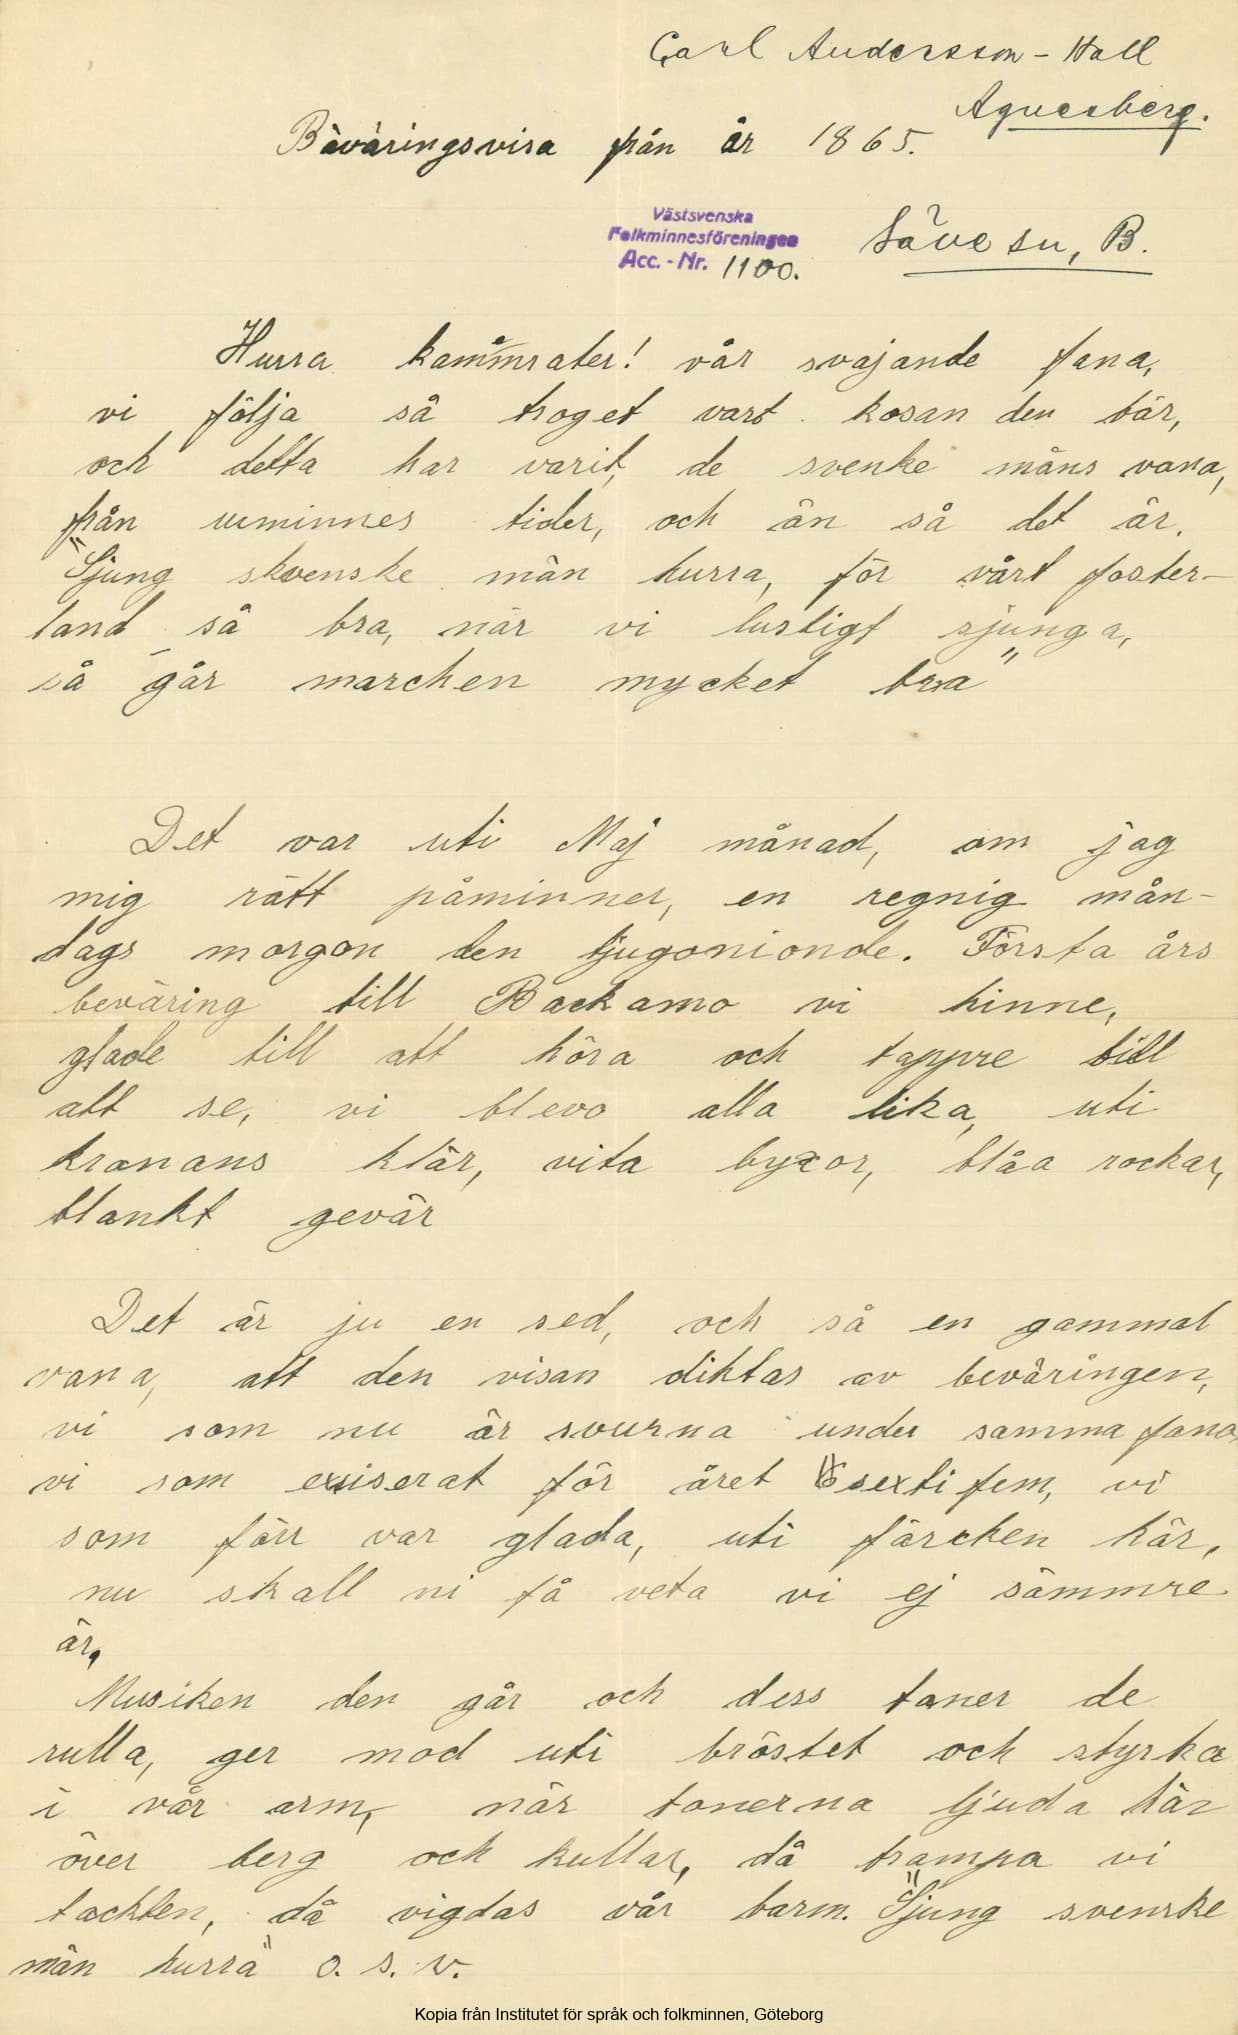 Carl Andersson - Hall
Agnesberg.
Bäväringsvisa från år 1865.
Västsvenska
Folkminnesföreningen
Acc. - Nr. 1100.
Säve sn, B.
Hurra kammrater! vår svajande fana,
vi följa så troget vart kosan den bär,
och detta har varit, de svenke mäns vana,
från urminnes tider, och än så det är.
"Sjung skvenske män hurra, för vårt foster-
land så bra, när vi lustigt sjunga,
så går marchen mycket bra"
Det var uti Maj månad, om jag
mig rätt påminner, en regnig mån-
dags morgon den tjugonionde. Första års
beväring till Backamo vi hinne,
glade till att höra och tappre till
att se, vi blevo alla lika, uti
kronans klär, vita byxor, blåa rockar,
blankt gevär
Det är ju en sed, och så en gammal
vana, att den visan diktas av beväringen,
vi som nu är svurna under samma fana
vi som exsiserat för året sextifem, vi
som förr var glada, uti färcken här,
nu skall ni få veta vi ej sämmre
är,
Musiken den går och dess toner de
rulla, ger mod uti bröstet och styrka
i vår arm, när tonerna ljuda här
över berg och kullar, då trampa vi
tackten, då vigdas vår barm. "Sjung svenske
män hurra" o. s. v.
Kopia från Institutet för språk och folkminnen, Göteborg